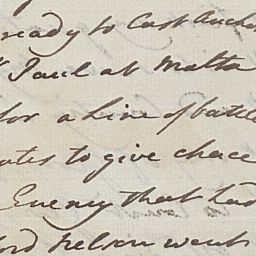 ready to Cast Anchor
Paul at Malta
for a Line of battle
ates to give chace
Enemy that had
ord Nelson went